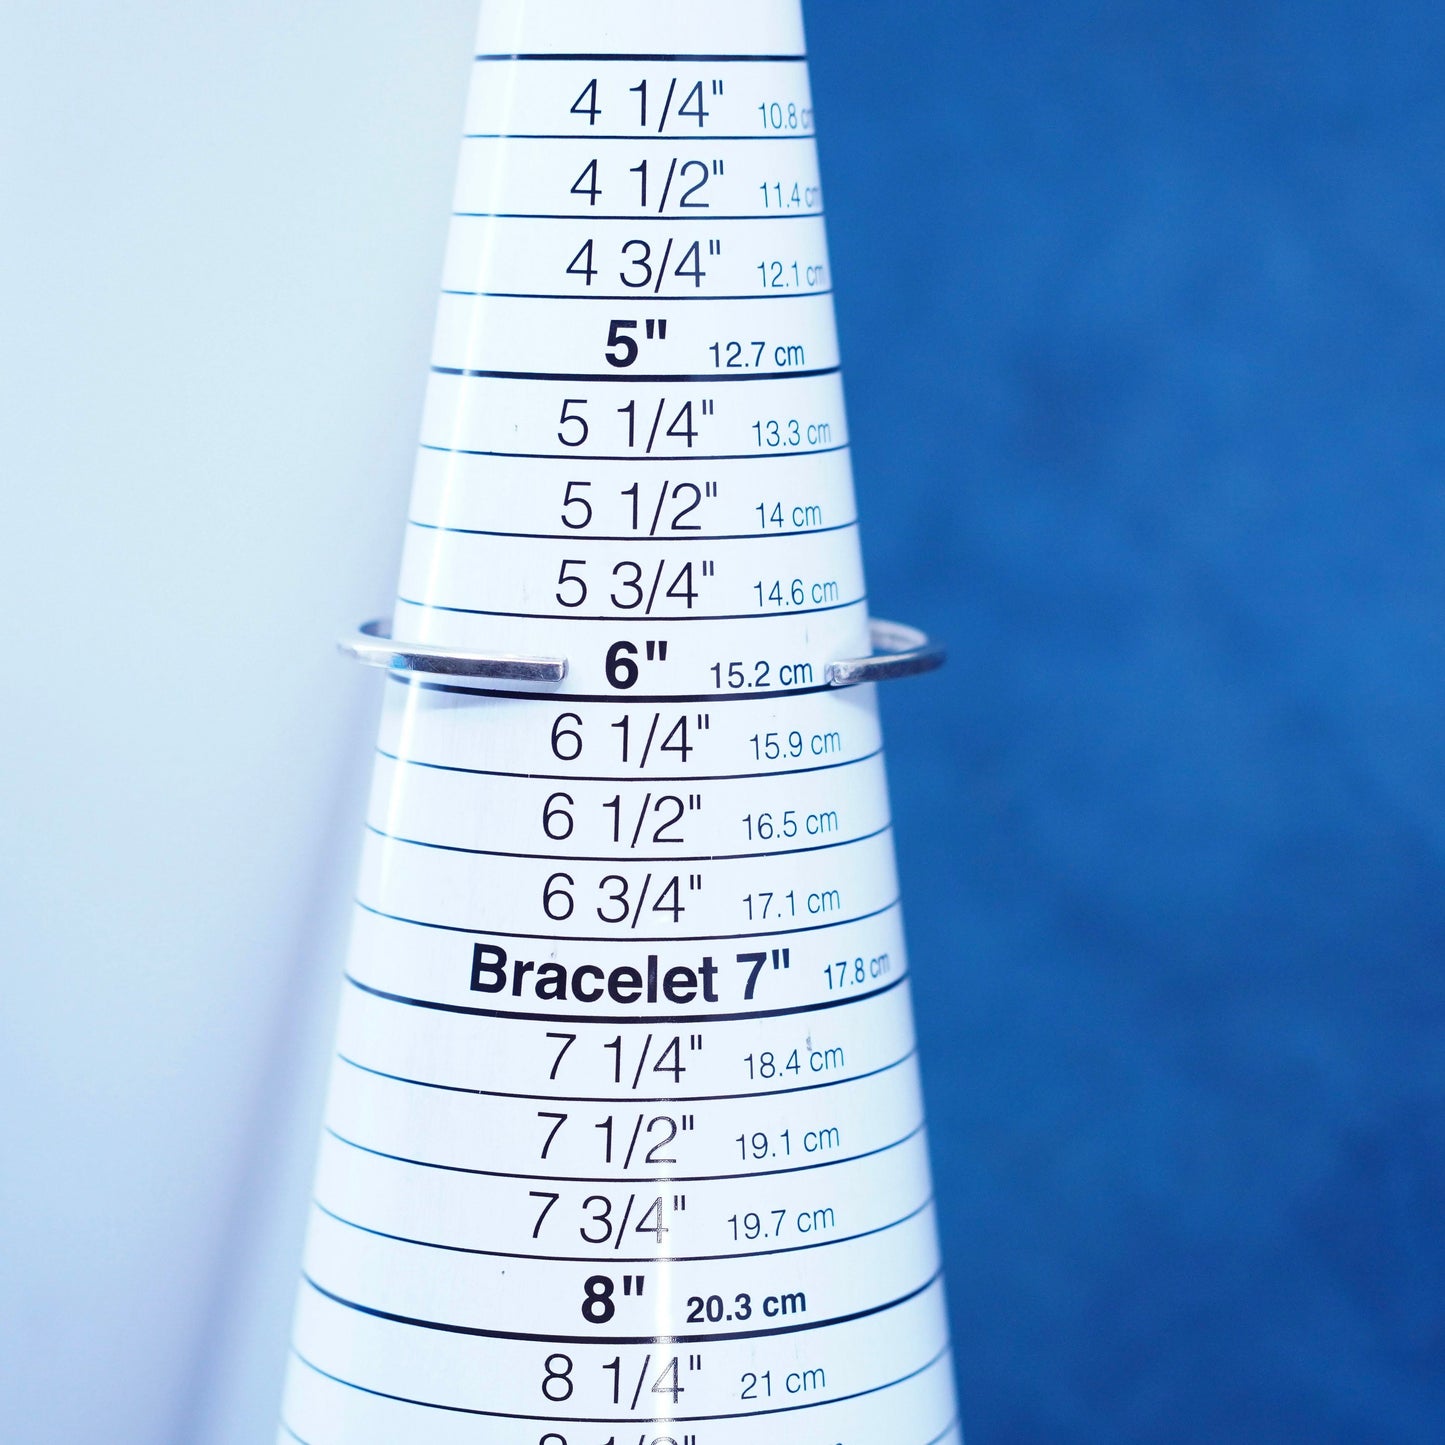 4 1/4" 10.8 cm
4 1/2" 11.4 cm
4 3/4" 12.1 cm
5" 12.7 cm
5 1/4" 13.3 cm
5 1/2" 14 cm
5 3/4" 14.6 cm
6" 15.2 cm
6 1/4" 15.9 cm
6 1/2" 16.5 cm
6 3/4" 17.1 cm
Bracelet 7" 17.8 cm
7 1/4" 18.4 cm
7 1/2" 19.1 cm
7 3/4" 19.7 cm
8" 20.3 cm
8 1/4" 21 cm